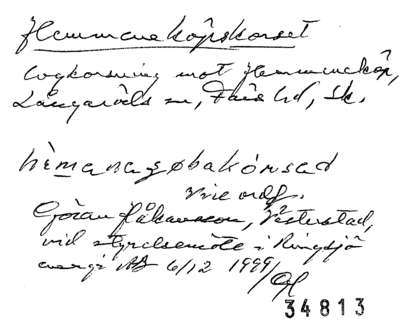 Hemmaneköpskorset
vägkorsning mot Hemmaneköp,
Långaröds sn, Färs hd, Sk.
hèmanaçøbakórsad
vice ordf.
Göran Håkansson, Västerstad,
vid styrelsemöte i Ringsjö
energi AB 6/12 1999/
34813